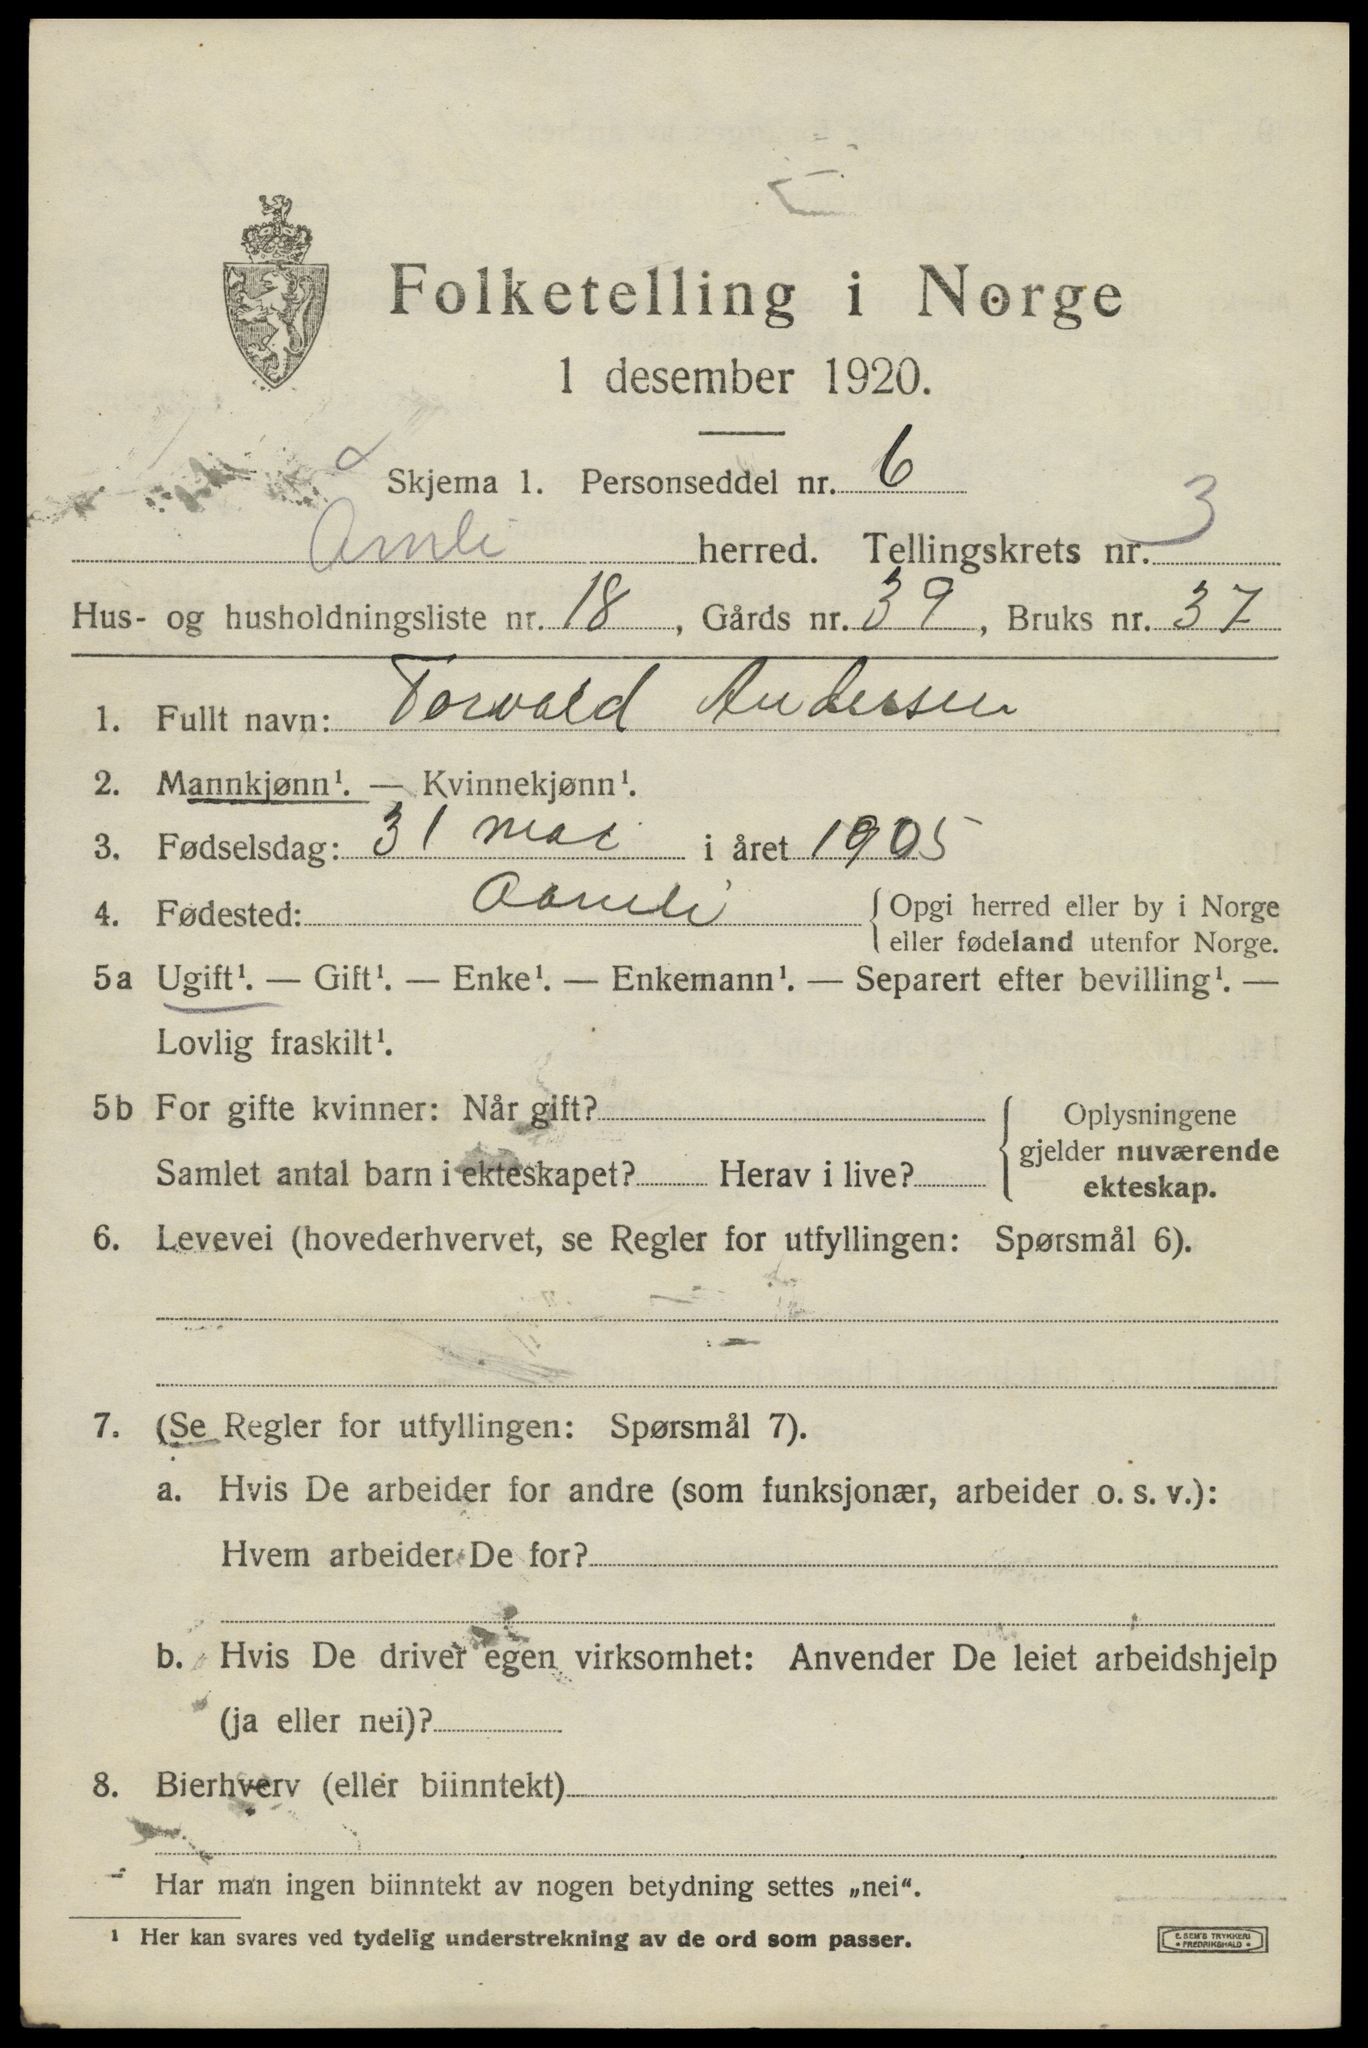 Folketelling i Norge
1 desember 1920.
Skjema 1. Personseddel nr. 6
Amli herred. Tellingskrets nr. 3
Hus- og husholdningsliste nr. 18, Gårds nr. 39, Bruks nr. 37
1. Fullt navn: Torvald Andersen
2. Mannkjønn¹. — Kvinnekjønn¹.
3. Fødselsdag: 31 mai i året 1905
4. Fødested: Aamli {Opgi herred eller by i Norge
eller fødeland utenfor Norge.
5a Ugift¹. — Gift¹. — Enke¹. — Enkemann¹. — Separert efter bevilling¹. —
Lovlig fraskilt¹.
5b For gifte kvinner: Når gift?
Samlet antal barn i ekteskapet? Herav i live?
{Oplysningene
gjelder nuværende
ekteskap.
6. Levevei (hovederhvervet, se Regler for utfyllingen: Spørsmål 6).
7. (Se Regler for utfyllingen: Spørsmål 7).
a. Hvis De arbeider for andre (som funksjonær, arbeider o. s. v.):
Hvem arbeider De for?
b. Hvis De driver egen virksomhet: Anvender De leiet arbeidshjelp
(ja eller nei)?
8. Bierhverv (eller biinntekt)
Har man ingen biinntekt av nogen betydning settes „nei“.
¹ Her kan svares ved tydelig understrekning av de ord som passer.
E. SEM'S TRYKKERI
• FREDRIKSHALD •